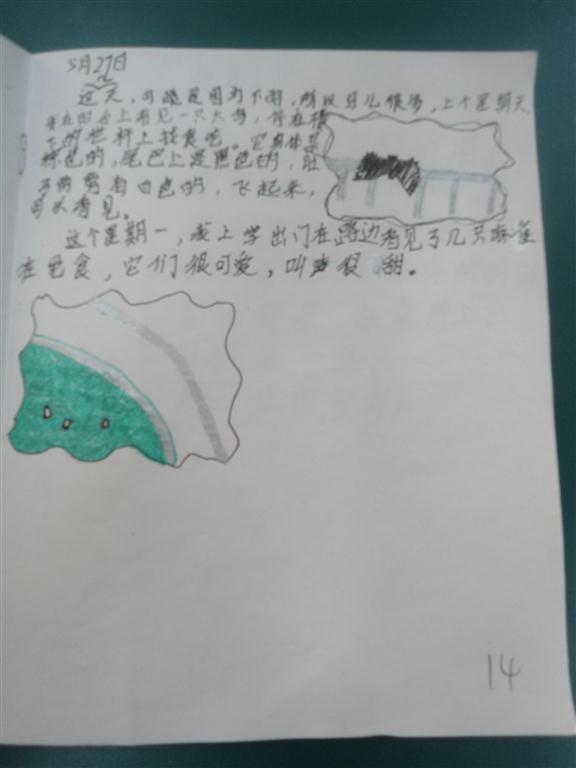 5月27日
这天,可能是因为下雨,所以鸟儿很少,上个星期天
我在阳台上看见一只大鸟,停在楼
下的栏杆上找食吃。它身体是
棕色的,尾巴上是黑色的,肚
子两旁有白色的,飞起来,
可以看见。
这个星期一,我上学出门在路边看见了几只麻雀
在觅食,它们很可爱,叫声很甜。
14